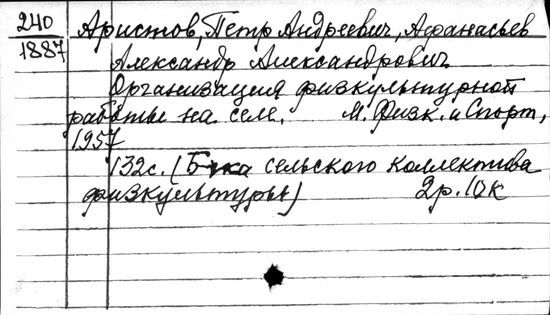 240 Аристов, Петр Андреевич, Афанасьев
1887 Александр Александрович
Организация физкультурной
работы на селе. М. Физк. и Спорт,
1957
132с. (Б-ка сельского коллектива
физкультуры) 2р. 10к